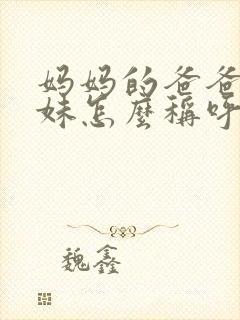 妈妈的爸爸
妹怎麼稱呼
魏鑫